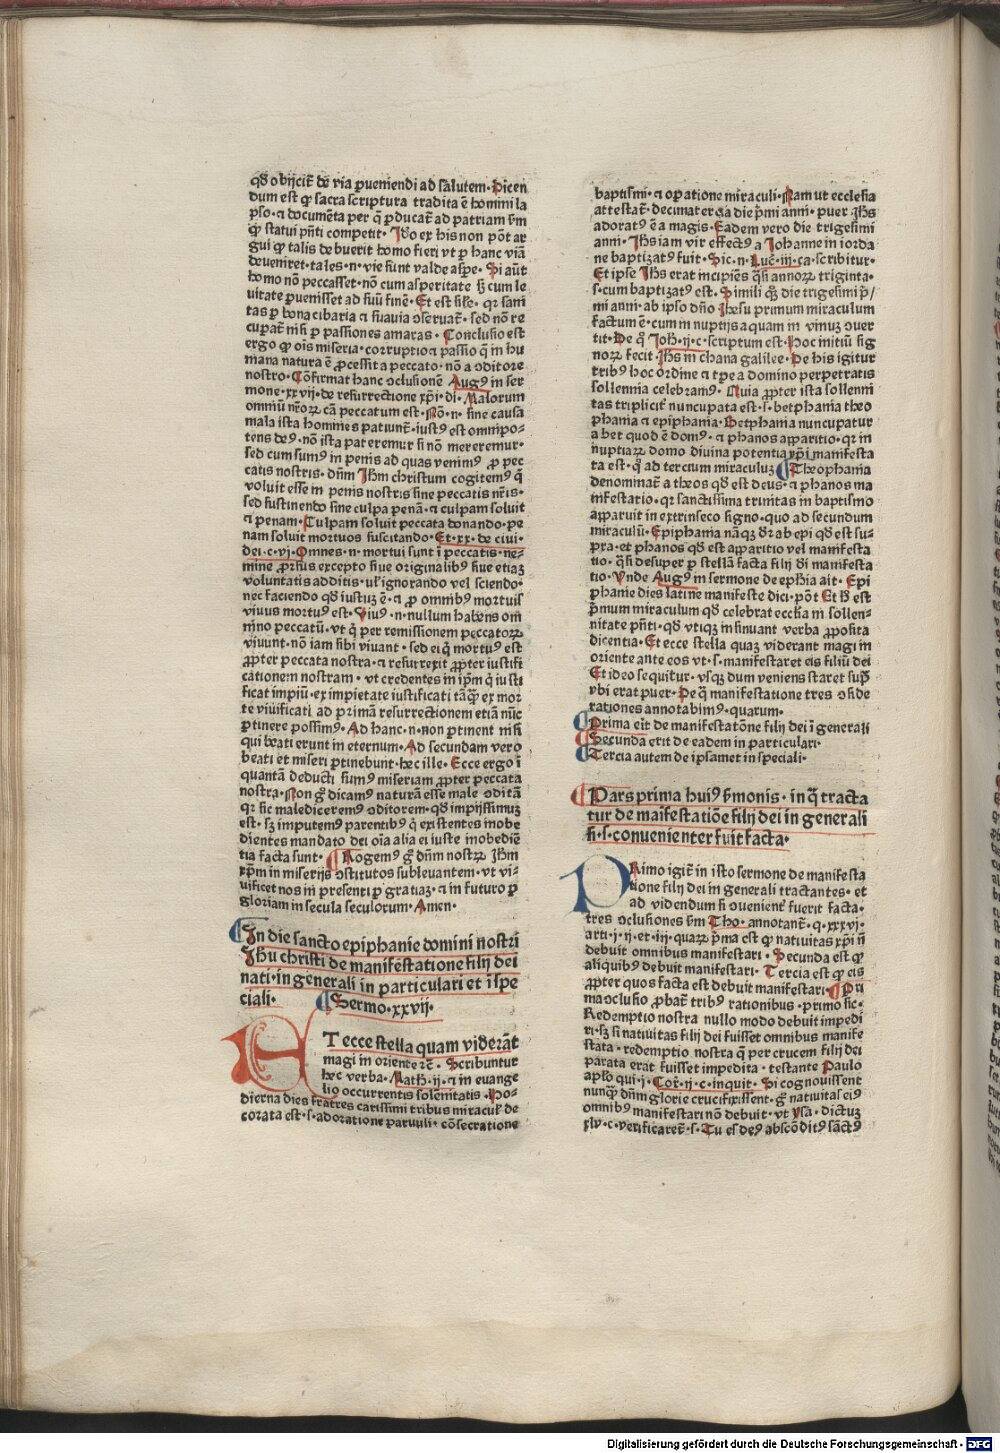 qđ obijcit̃ de via ꝑueniendi ad salutem· Dicen
dum est ꝙ sacra scriptura tradita ē homini la
pso· ⁊ documēta per q̄ ꝑducat̃ ad patriam ẜm
ꝙ statui pñti competit· Iđo ex his non pōt ar
gui ꝙ talis debuerit homo fieri vt ꝑ hanc viā
deveniret· tales· n· vie sunt valde aspe· Si aūt
homo nō peccasset· nō cum asperitate sꝫ cum le
uitate ꝑuenisset ad suū finē· Et est sil̃e· qꝛ sani
tas ꝑ bona cibaria ⁊ suauia ꝯseruat̃· sed nō re
cuꝑat̃ nisi ꝑ passiones amaras· Conclusio est
ergo ꝙ oīs miseria· corruptio ⁊ passio q̄ in hu
mana natura ē ꝓcessit a peccato· nō a ꝯditore
nostro· Cōfirmat hanc ꝯclusionē Augꝰ in ser
mone· xxvij· de resurrectione xp̄i· di· Malorum
omniū nr̃oꝝ cā peccatum est· Nō· n· sine causa
mala ista homines patiunt̃· iustꝰ est omnipo-
tens deꝰ· nō ista pateremur si nō mereremur·
sed cum sumꝰ in penis ad quas venimꝰ ꝓ pec
catis nostris· dñm Ihm̄ christum cogitemꝰ q̄
voluit esse in penis nostris sine peccatis nr̃is·
sed sustinendo sine culpa penā· ⁊ culpam soluit
⁊ penam· Culpam soluit peccata donando· pe
nam soluit mortuos suscitando· Et· xx· de ciui·
dei· c· vj· Omnes· n· mortui sunt ī peccatis· ne-
mine ꝓrsus excepto siue originalibꝰ siue etiaꝫ
voluntatis additis· vl̃ ignorando vel sciendo·
nec faciendo qđ iustuꝫ ē· ⁊ ꝓ omnibꝰ mortuis
viuus mortuꝰ est· Viuꝰ· n· nullum habens om
nino peccatū· vt q̄ per remissionem peccatoꝝ
viuunt· nō iam sibi viuant· sed ei q̄ mortuꝰ est
ꝓpter peccata nostra· ⁊ resurrexit ꝓpter iustifi
cationem nostram· vt credentes in ip̄m q̄ iusti
ficat impiū· ex impietate iustificati tāꝙ̄ ex mor
te viuificati ad primā resurrectionem etiā nūc
ꝑtinere possimꝰ· Ad hanc· n· non ꝑtinent nisi
qui beati erunt in eternum· Ad secundam vero
beati et miseri ꝑtinebunt· hec ille· Ecce ergo ī
quantā deducti sumꝰ miseriam ꝓpter peccata
nostra· Non g̊ dicamꝰ naturā esse male ꝯditā
qꝛ sic malediceremꝰ ꝯditorem· qđ impijssimuꝫ
est· sꝫ imputemꝰ parentibꝰ q̄ existentes inobe
dientes mandato dei oīa alia ei iuste inobediē
tia facta sunt· Rogemꝰ g̊ dñm nostꝝ Ihm̄
xp̄m in miserijs ꝯstitutos subleuantem· vt vi-
uificet nos in presenti ꝑ gratiaꝫ· ⁊ in futuro ꝑ
gloriam in secula seculorum· Amen·
In die sancto epiphanie domini nostri
Ihū christi de manifestatione filij dei
nati· in generali in particulari et ī spe
ciali· Sermo· xxvij·
ET ecce stella quam viderāt
magi in oriente ⁊c̃· Scribuntur
hec verba· Math· ij· ⁊ in euange
lio occurrentis solēnitatis· Ho-
dierna dies fratres carissimi tribus miracul̃ de
corata est· s· adoratione paruuli· cōsecratione
baptismi· ⁊ oꝑatione miraculi· Nam ut ecclesia
attestat̃· decimatercia die p̄mi anni· puer Ihs̄
adoratꝰ ē a magis· Eadem vero die trigesimi
anni· Ihs̄ iam vir effectꝰ a Iohanne in iorda
ne baptizatꝰ fuit· Sic· n· Luc̄· iij· ca· scribitur·
Et ipse Ihs̄ erat incipiēs q̄si annoꝝ triginta·
s· cum baptizatꝰ est· Simili qꝫ die trigesimi p̄/
mi anni· ab ipso dño Ihesu primum miraculum
factum ē· cum in nuptijs aquam in vinuꝫ ꝯuer
tit· De q̊ Ioh· ij· c· scriptum est· Hoc initiū sig
noꝝ fecit· Ihs̄ in chana galilee· De his igitur
tribꝰ hoc ordine ⁊ tꝑe a domino perpetratis
sollennia celebramꝰ· Quia ꝓpter ista sollenni
tas triplicit̃ nuncupata est· s· bethphania theo
phania ⁊ epiphania· Bethphania nuncupatur
a bet quod ē domꝰ· ⁊ phanos apparitio· qꝛ in
nuptiaꝝ domo diuina potentia xp̄i manifesta
ta est· q̊ ad tercium miraculuꝫ Theophania
denominat̃ a theos qđ est deus· ⁊ phanos ma
nifestatio· qꝛ sanctissima trinitas in baptismo
apparuit in extrinseco signo· quo ad secundum
miraculū· Epiphania nāqꝫ dr̃ ab epi qđ est su-
pra· et phanos qđ est apparitio vel manifesta
tio· q̄si desuper ꝑ stellā facta filij dei manifesta
tio· Vnde Augꝰ in sermone de epħia ait· Epi
phanie dies latine manifeste dici· pōt Et h̄ est
p̄mum miraculum qđ celebrat eccl̃ia in sollen-
nitate pñti· qđ vtiqꝫ insinuant verba ꝓposita
dicentia· Et ecce stella quaꝫ viderant magi in
oriente ante eos vt· s· manifestaret eis filiū dei
Et ideo sequitur· vsqꝫ dum veniens staret sup̄
vbi erat puer· De q̄ manifestatione tres ꝯside
rationes annotabimꝰ· quarum·
Prima erit de manifestatōne filij dei ī generali
Secunda erit de eadem in particulari·
Tercia autem de ipsamet in speciali·
Pars prima huiꝰ ẜmonis· in q̄ tracta
tur de māifestatiōne filij dei in generali
si· s· conuenienter fuit facta·
PRimo igit̃ in isto sermone de manifesta
tione filij dei in generali tractantes· et
ad videndum si ꝯuenient̃ fuerit facta·
tres ꝯclusiones ẜm Tho· annotant̃· q· xxxvj·
arti· j· ij· et· iij· quaꝝ p̄ma est ꝙ natiuitas xp̄i ñ
debuit omnibus manifestari· Secunda est ꝙ
aliquibꝰ debuit manifestari· Tercia est ꝙ eis
ꝓpter quos facta est debuit manifestari· Pri
ma ꝯclusio ꝓbat̃ tribꝰ rationibus· primo sic·
Redemptio nostra nullo modo debuit impedi
ri· sꝫ si natiuitas filij dei fuisset omnibus manife
stata· redemptio nostra q̄ per crucem filij dei
parata erat fuisset impedita· testante Paulo
apl̃o qui· j· Cor̃· ij· c· inquit· Si cognouissent
nunqꝫ̄ dñm glorie crucifixissent· g̊ natiuitas eiꝰ
omnibꝰ manifestari nō debuit· vt ysa· dictuꝫ
xlv· c· verificaret̃· s· Tu es deꝰ abscōditꝰ sāctꝰ
Digitalisierung gefördert durch die Deutsche Forschungsgemeinschaft · DFG